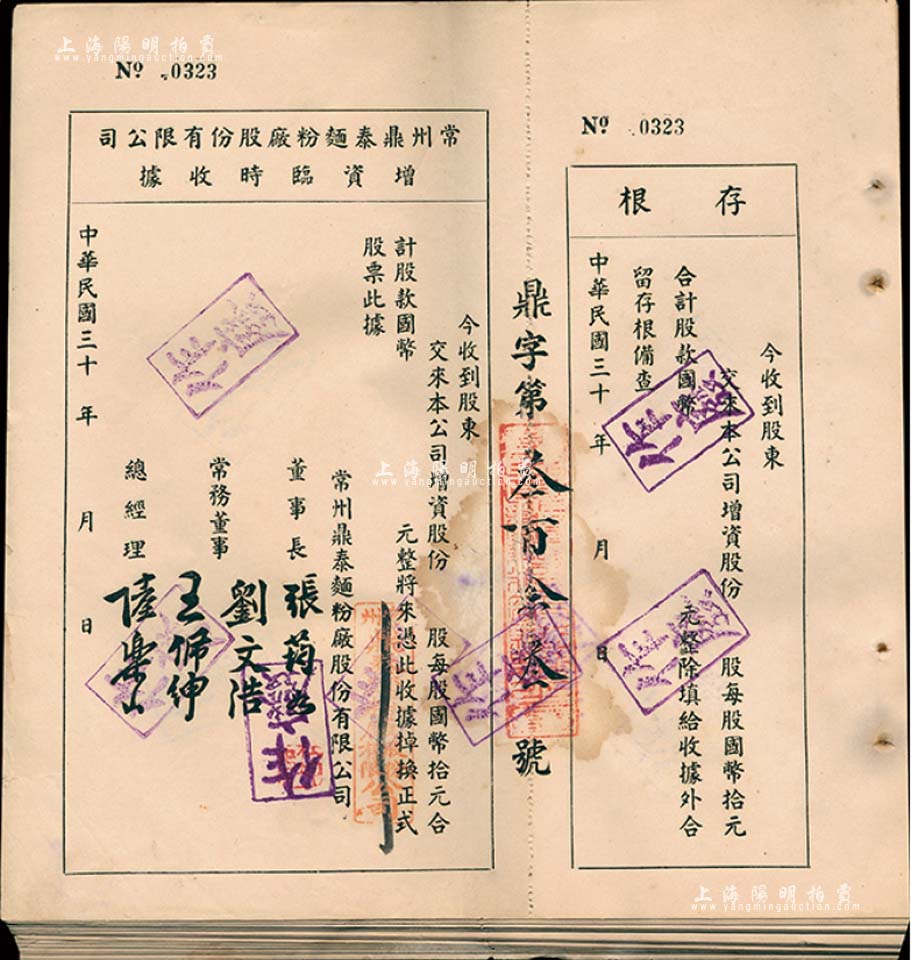 上海陽明拍賣
www.yangmingauction.com
Nº 0323
存根
今收到股東
交來本公司增資股份 股每股國幣拾元
合計股款國幣 元整除填給收據外合
留存根備查
中華民國三十 年 月 日
鼎字第叁百 叁號
Nº 0323
常州鼎泰麵粉廠股份有限公司
增資臨時收據
今收到股東
交來本公司增資股份 股每股國幣拾元合
計股款國幣 元整將來憑此收據掉換正式
股票此據
常州鼎泰麵粉廠股份有限公司
董事長 張
常務董事 劉文浩
王佩紳
總經理 陸
中華民國三十 年 月 日
上海陽明拍賣
www.yangmingauction.com
上海陽明拍賣
www.yangmingauction.com